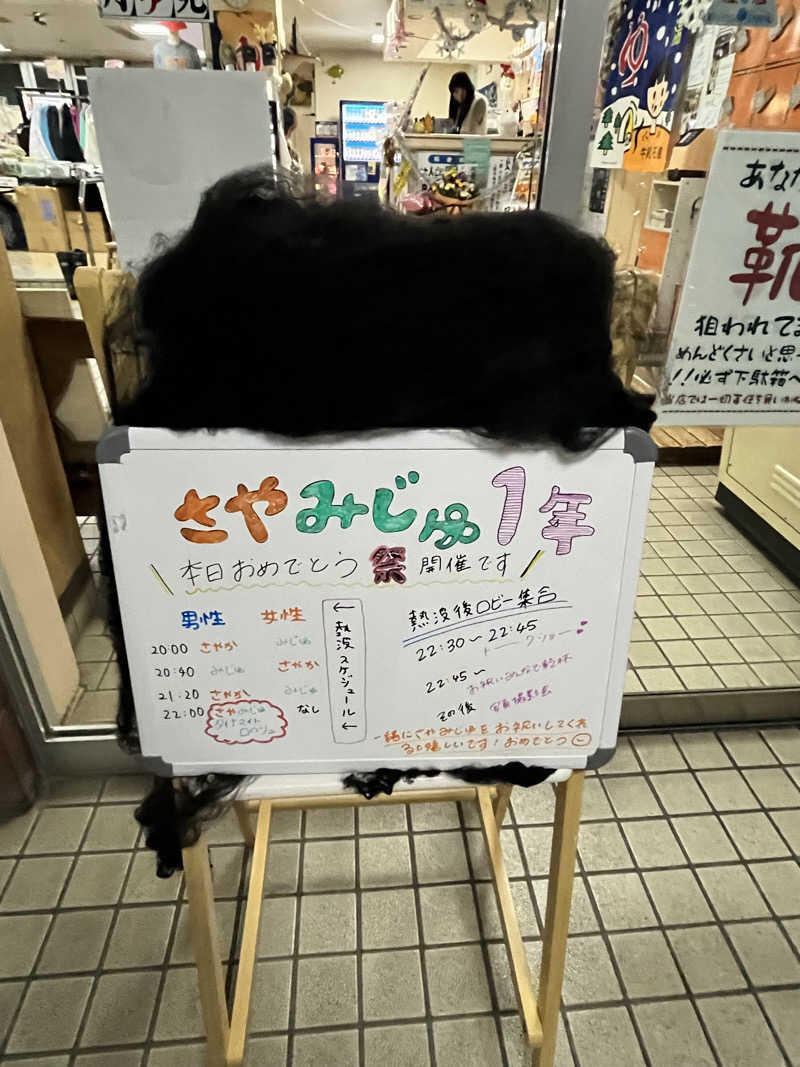 あな
靴
狙われて
めんどくさいと思
!!必ず下駄箱へ
当店では一切責任を負い
さやみじゅ1年
本日おめでとう祭開催です
男性 女性
20:00 さやか みじゅ
20:40 みじゅ さやか
21:20 さやか みじゅ
22:00 さやみじゅ なし
ダイナマイト
ロウリュ
←熱波スケジュール←
熱波後ロビー集合
22:30〜22:45
トークショー
22:45〜
お祝いみんなで乾杯
その後 写真撮影会
一緒にさやみじゅをお祝いしてくれ
ると嬉しいです!おめでとう